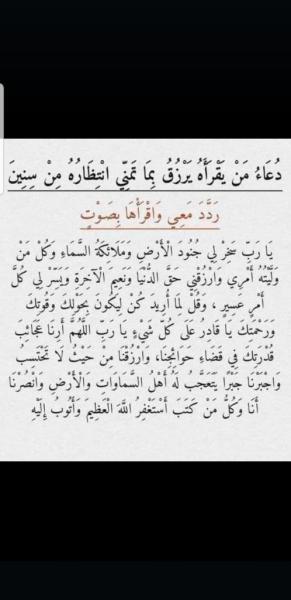 دُعَاءُ مَنْ يَقْرَأَهُ يَرْزُقُ بِمَا تَمَنِّي انْتِظَارُهُ مِنْ سِنِينَ
رَدَّدَ مَعِي وَاقْرَأْهَا بِصَوْتٍ
يَا رَبِّ سَخِرْ لِي جُنُودَ الْأَرْضِ وَمَلَائِكَةَ السَّمَاءِ وَكُلَّ مَنْ
وَلَّيْتُهُ أَمْرِي وَارْزُقْنِي حَقَّ الدُّنْيَا وَنَعِيمَ الْآخِرَةِ وَيَسِّرْ لِي كُلَّ
أَمْرٍ عَسِيرٍ ، وَقُلْ لِمَا أُرِيدُ كُنْ لِيَكُونَ بِحَوْلِكَ وَقُوَّتِكَ
وَرَحْمَتِكَ يَا قَادِرُ عَلَى كُلِّ شَيْءٍ يَا رَبِّ اللَّهُمَّ أَرِنَا عَجَائِبَ
قُدْرَتِكَ فِي قَضَاءِ حَوَائِجِنَا، وَارْزُقْنَا مِنْ حَيْثُ لَا نَحْتَسِبُ
وَاجْبُرْنَا جَبْرًا يَتَعَجَّبُ لَهُ أَهْلُ السَّمَاوَاتِ وَالْأَرْضِ وَانْصُرْنَا
أَنَا وَكُلُّ مَنْ كَتَبَ أَسْتَغْفِرُ اللَّهَ الْعَظِيمَ وَأَتُوبُ إِلَيْهِ